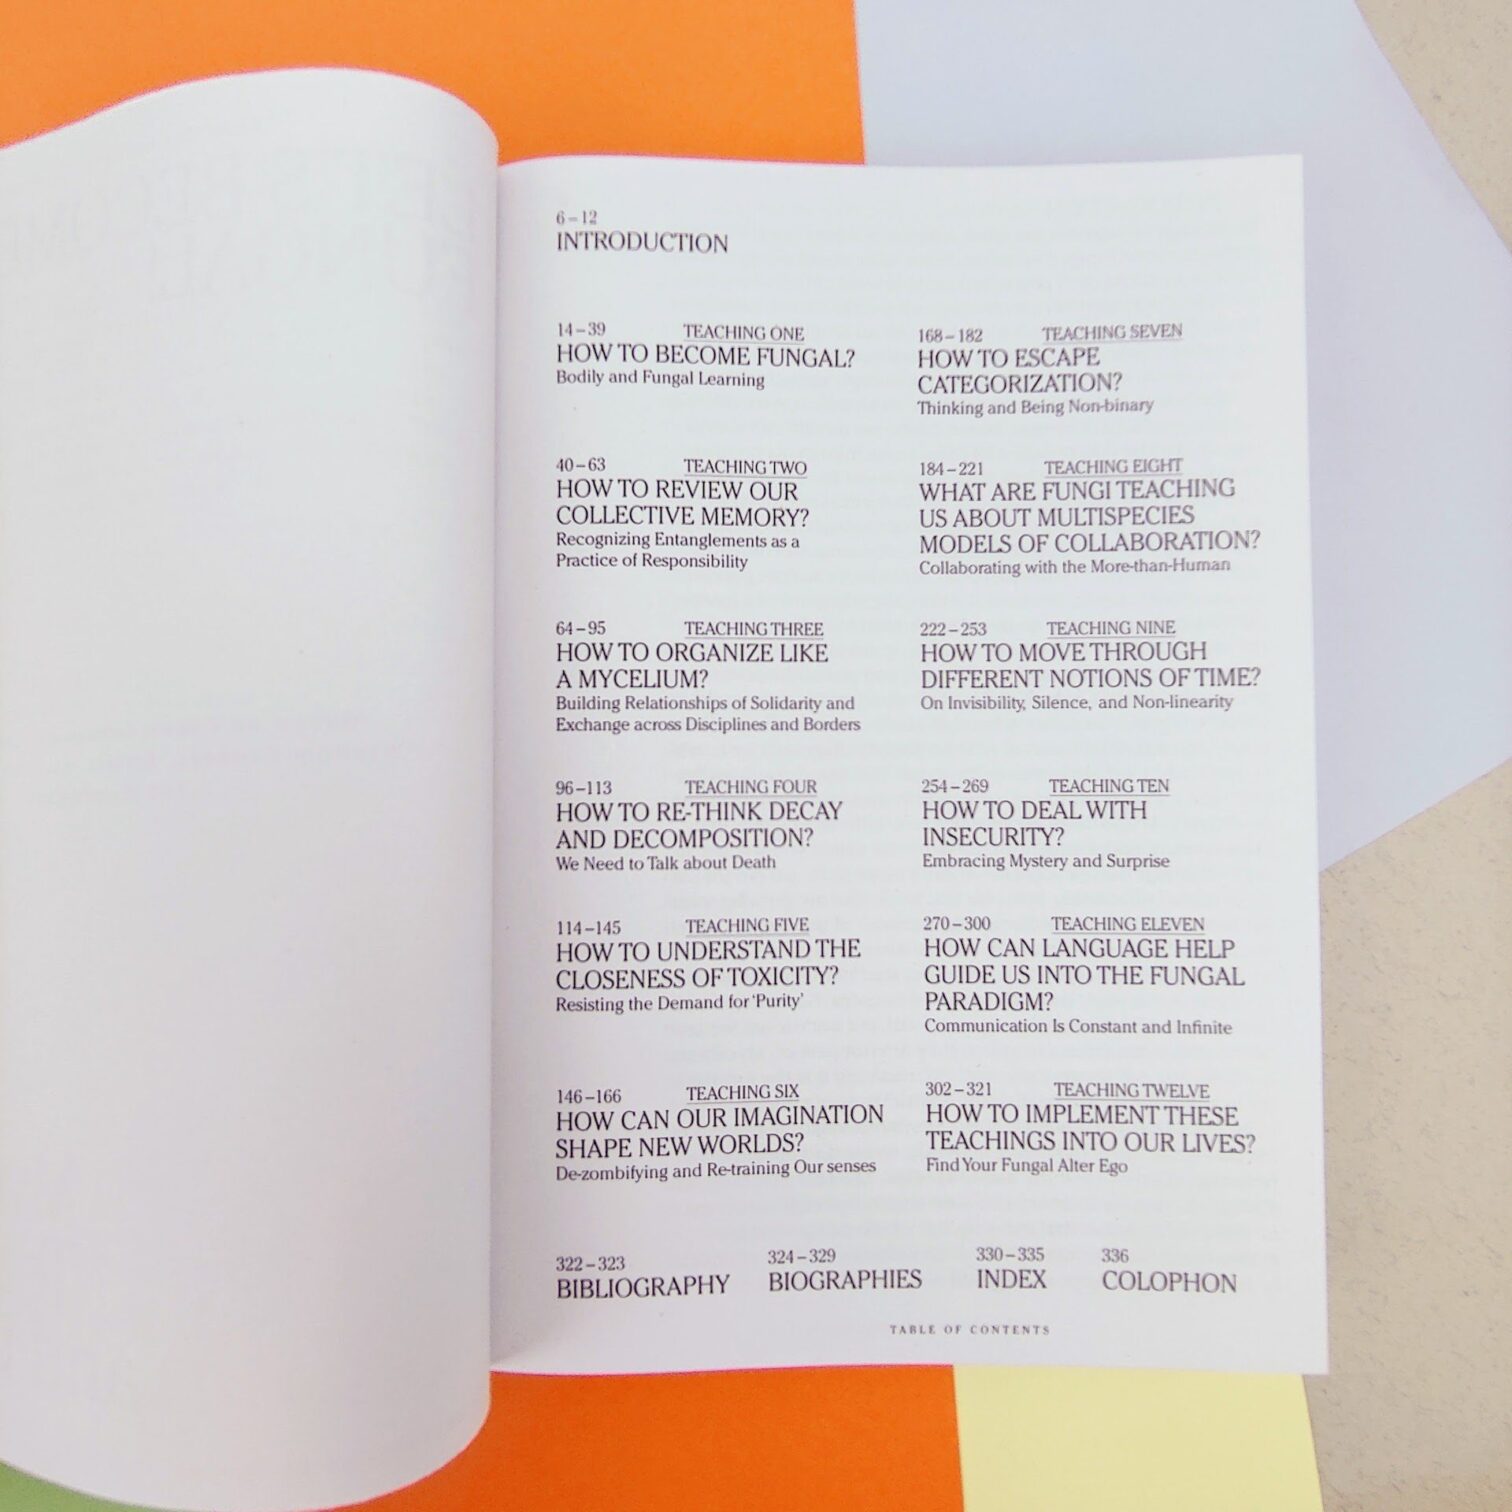 6–12
INTRODUCTION
14–39 TEACHING ONE
HOW TO BECOME FUNGAL?
Bodily and Fungal Learning
40–63 TEACHING TWO
HOW TO REVIEW OUR
COLLECTIVE MEMORY?
Recognizing Entanglements as a
Practice of Responsibility
64–95 TEACHING THREE
HOW TO ORGANIZE LIKE
A MYCELIUM?
Building Relationships of Solidarity and
Exchange across Disciplines and Borders
96–113 TEACHING FOUR
HOW TO RE-THINK DECAY
AND DECOMPOSITION?
We Need to Talk about Death
114–145 TEACHING FIVE
HOW TO UNDERSTAND THE
CLOSENESS OF TOXICITY?
Resisting the Demand for ‘Purity’
146–166 TEACHING SIX
HOW CAN OUR IMAGINATION
SHAPE NEW WORLDS?
De-zombifying and Re-training Our senses
168–182 TEACHING SEVEN
HOW TO ESCAPE
CATEGORIZATION?
Thinking and Being Non-binary
184–221 TEACHING EIGHT
WHAT ARE FUNGI TEACHING
US ABOUT MULTISPECIES
MODELS OF COLLABORATION?
Collaborating with the More-than-Human
222–253 TEACHING NINE
HOW TO MOVE THROUGH
DIFFERENT NOTIONS OF TIME?
On Invisibility, Silence, and Non-linearity
254–269 TEACHING TEN
HOW TO DEAL WITH
INSECURITY?
Embracing Mystery and Surprise
270–300 TEACHING ELEVEN
HOW CAN LANGUAGE HELP
GUIDE US INTO THE FUNGAL
PARADIGM?
Communication Is Constant and Infinite
302–321 TEACHING TWELVE
HOW TO IMPLEMENT THESE
TEACHINGS INTO OUR LIVES?
Find Your Fungal Alter Ego
322–323
BIBLIOGRAPHY
324–329
BIOGRAPHIES
330–335
INDEX
336
COLOPHON
TABLE OF CONTENTS